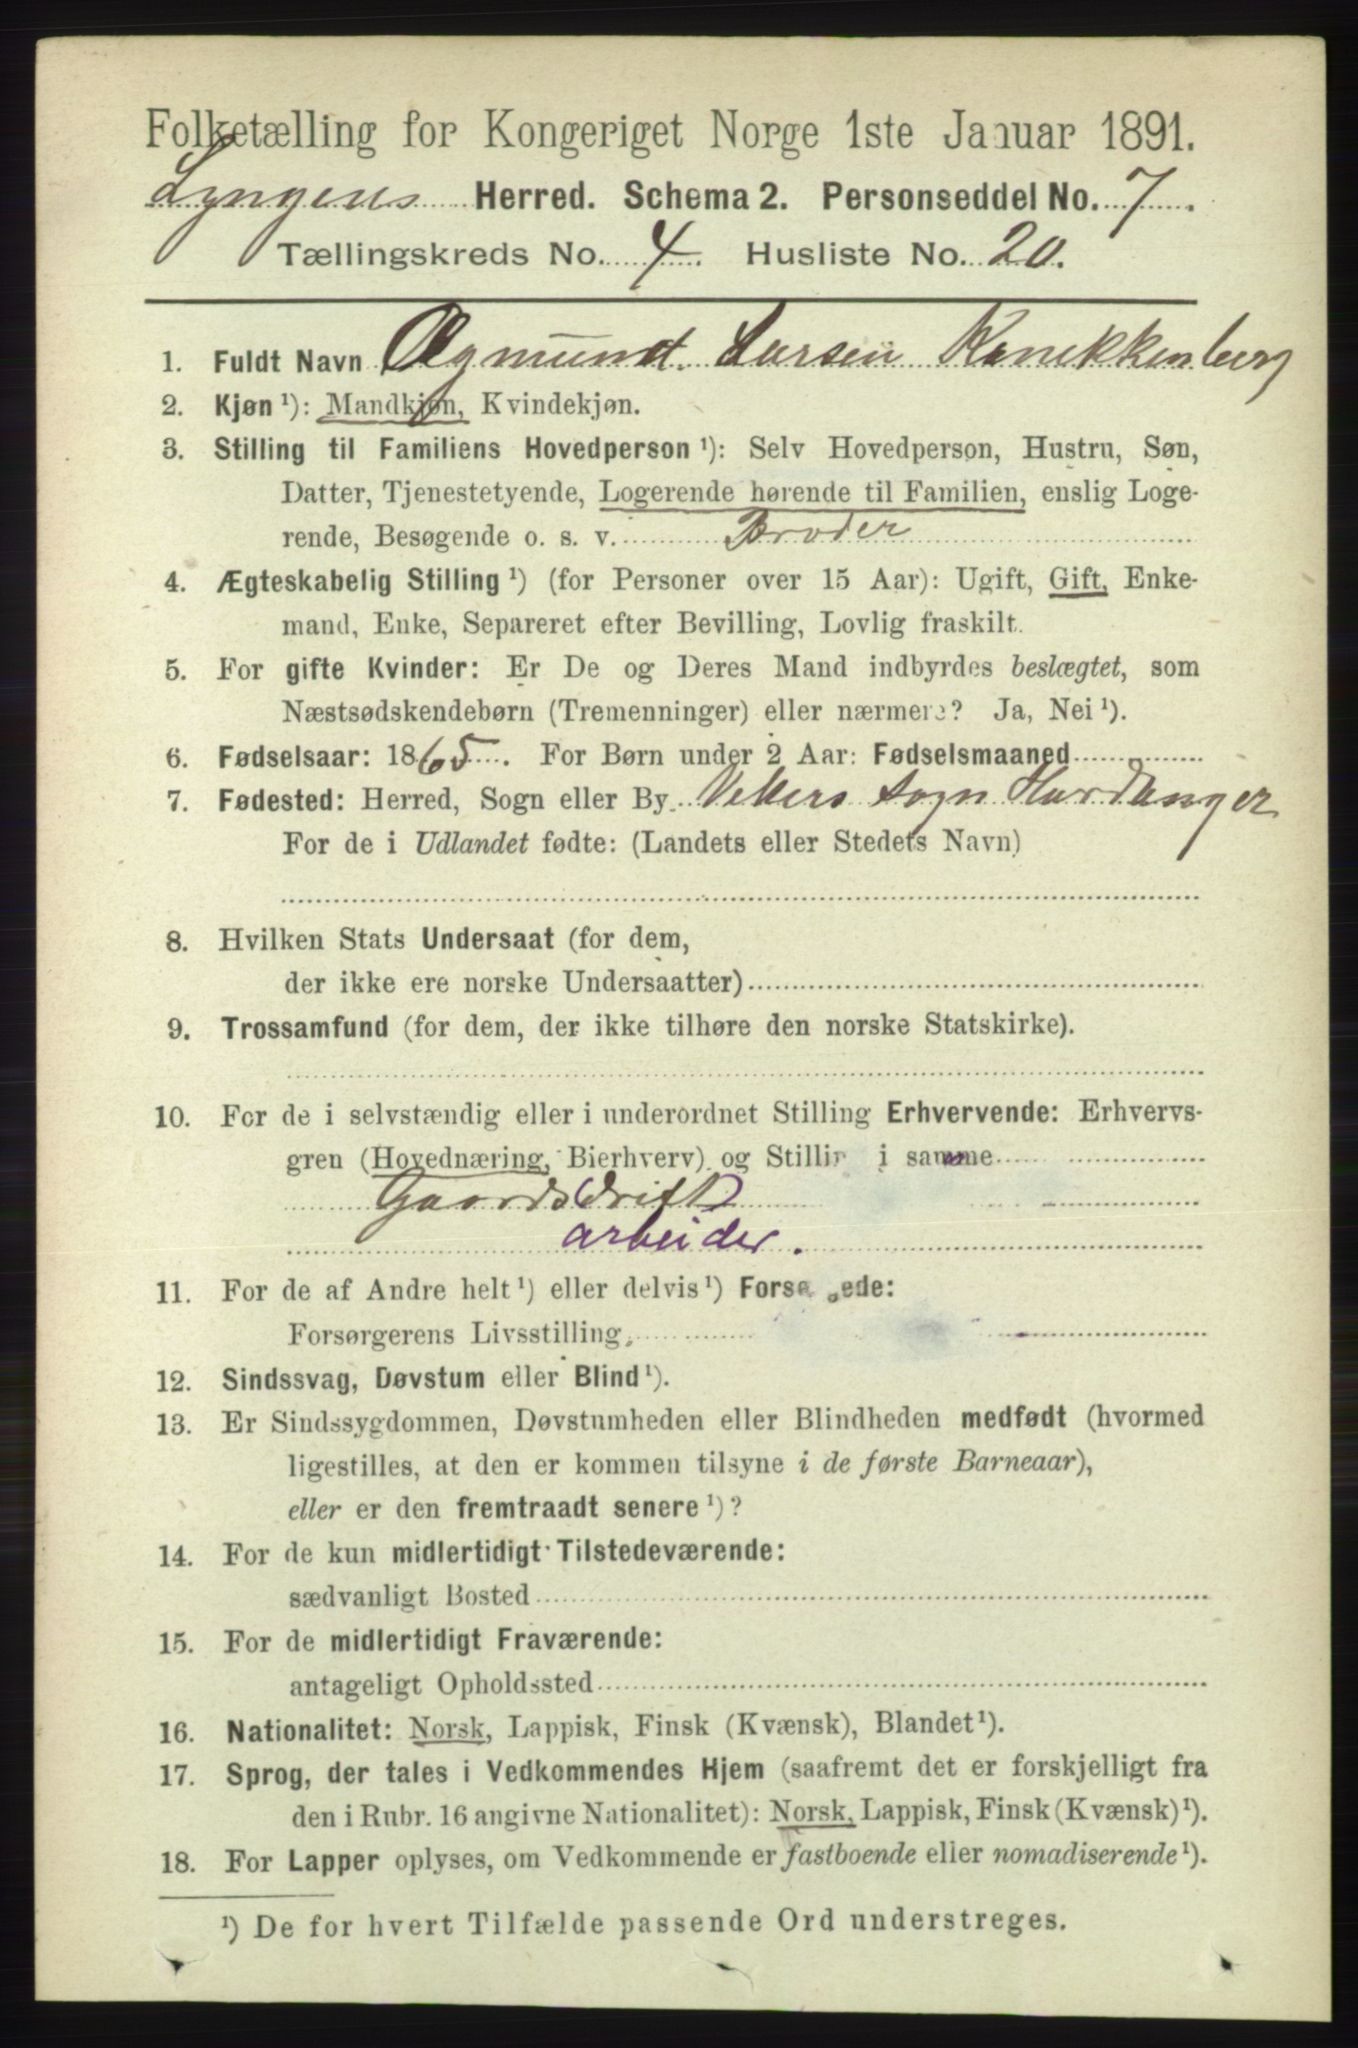 Folketælling for Kongeriget Norge 1ste Januar 1891.
Lyngens Herred. Schema 2. Personseddel No. 7.
Tællingskreds No. 4. Husliste No. 20.
1. Fuldt Navn Ogmund Larsen
2. Kjøn ¹): Mandkjøn, Kvindekjøn.
3. Stilling til Familiens Hovedperson ¹): Selv Hovedperson, Hustru, Søn,
Datter, Tjenestetyende, Logerende hørende til Familien, enslig Loge-
rende, Besøgende o. s. v. Broder
4. Ægteskabelig Stilling ¹) (for Personer over 15 Aar): Ugift, Gift, Enke-
mand, Enke, Separeret efter Bevilling, Lovlig fraskilt.
5. For gifte Kvinder: Er De og Deres Mand indbyrdes beslægtet, som
Næstsødskendebørn (Tremenninger) eller nærmere? Ja, Nei ¹).
6. Fødselsaar: 1865. For Børn under 2 Aar: Fødselsmaaned
7. Fødested: Herred, Sogn eller By sogn Hardanger
For de i Udlandet fødte: (Landets eller Stedets Navn)
8. Hvilken Stats Undersaat (for dem,
der ikke ere norske Undersaatter)
9. Trossamfund (for dem, der ikke tilhøre den norske Statskirke).
10. For de i selvstændig eller i underordnet Stilling Erhvervende: Erhvervs-
gren (Hovednæring, Bierhverv) og Stillin i samme
Gaardsdrift
arbeider.
11. For de af Andre helt ¹) eller delvis ¹) Forsørgede:
Forsørgerens Livsstilling
12. Sindssvag, Døvstum eller Blind ¹).
13. Er Sindssygdommen, Døvstumheden eller Blindheden medfødt (hvormed
ligestilles, at den er kommen tilsyne i de første Barneaar),
eller er den fremtraadt senere ¹)?
14. For de kun midlertidigt Tilstedeværende:
sædvanligt Bosted
15. For de midlertidigt Fraværende:
antageligt Opholdssted
16. Nationalitet: Norsk, Lappisk, Finsk (Kvænsk), Blandet ¹).
17. Sprog, der tales i Vedkommendes Hjem (saafremt det er forskjelligt fra
den i Rubr. 16 angivne Nationalitet): Norsk, Lappisk, Finsk (Kvænsk) ¹).
18. For Lapper oplyses, om Vedkommende er fastboende eller nomadiserende ¹).
¹) De for hvert Tilfælde passende Ord understreges.